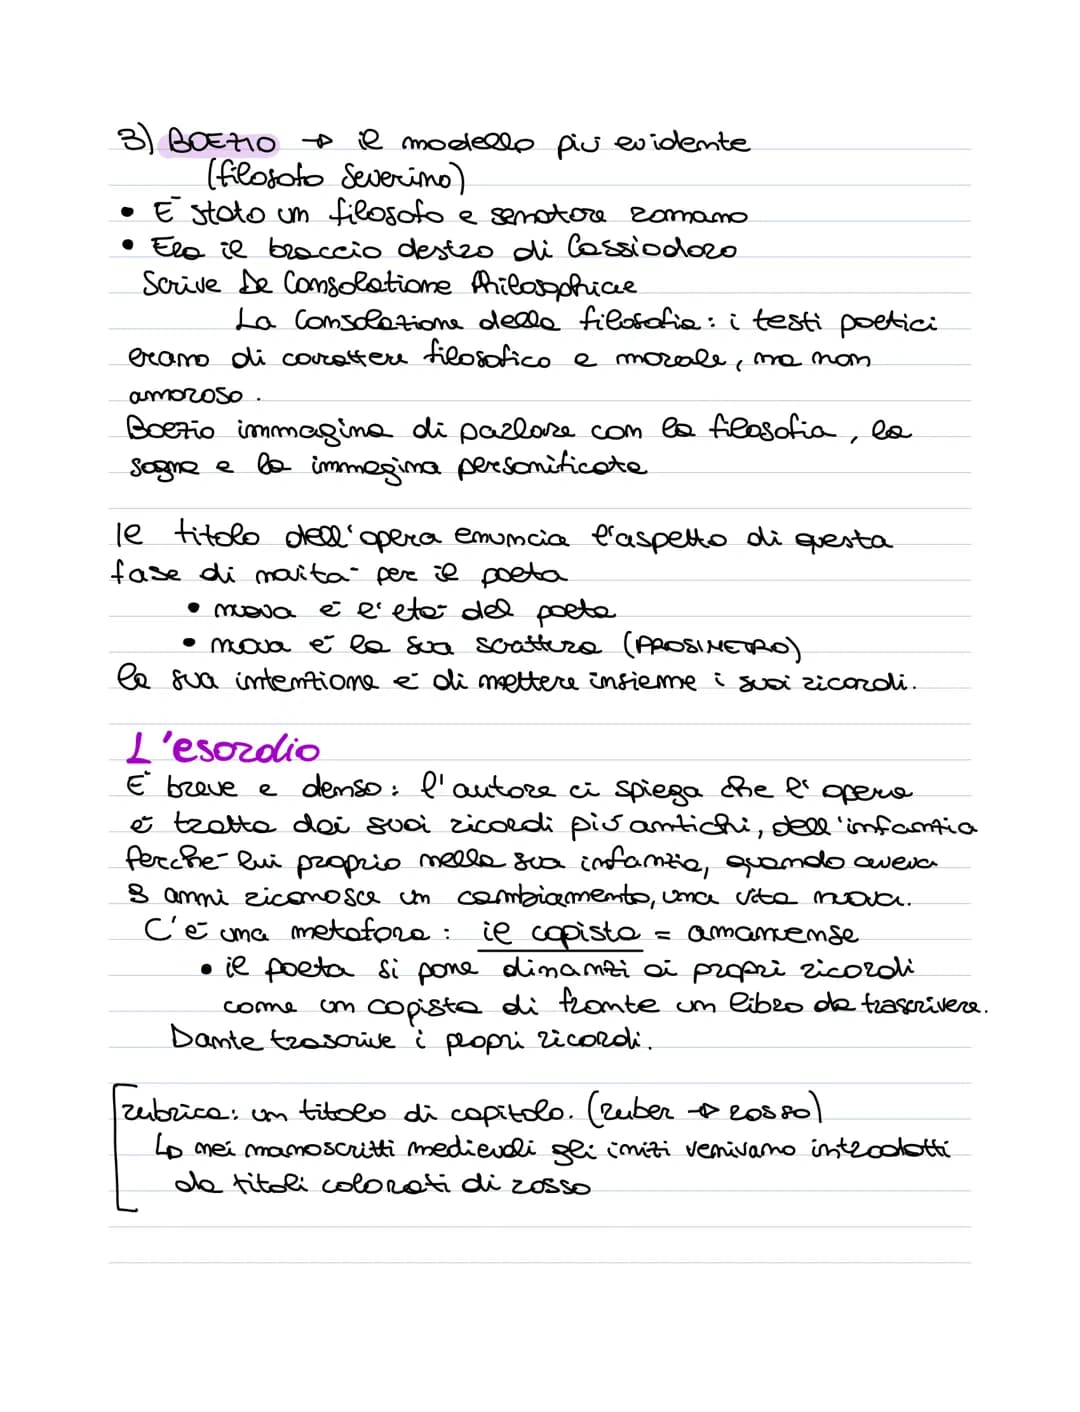 3) BOEZIO → il modello più evidente
(filosofo Severino)
• È stato un filosofo e senatore romano
• Era il braccio destro di Cassiodoro
Scrive De Consolatione Philosophiae
La Consolazione della filosofia: i testi poetici
erano di carattere filosofico e morale, ma non
amoroso.
Boezio immagina di parlare con la filosofia, la
sogna e la immagina personificata
Il titolo dell'opera enuncia l'aspetto di questa
fase di novità per il poeta
• nuova è l'età del poeta
• nova è la sua scrittura (PROSIMETRO)
la sua intenzione è di mettere insieme i suoi ricordi.
L'esordio
È breve e denso: l'autore ci spiega che l'opera
è tratta dai suoi ricordi più antichi, dell'infanzia
Perché lui proprio nella sua infanzia, quando aveva
9 anni riconosce un cambiamento, una vita nova.
C'è una metafora: il copista = amanuense
• il poeta si pone dinanzi ai propri ricordi
come un copista di fronte un libro da trascrivere.
Dante trascrive i propri ricordi.
rubrica: un titolo di capitolo. (ruber → rosso)
↳ nei manoscritti medievali gli inizi venivano introdotti
da titoli colorati di rosso